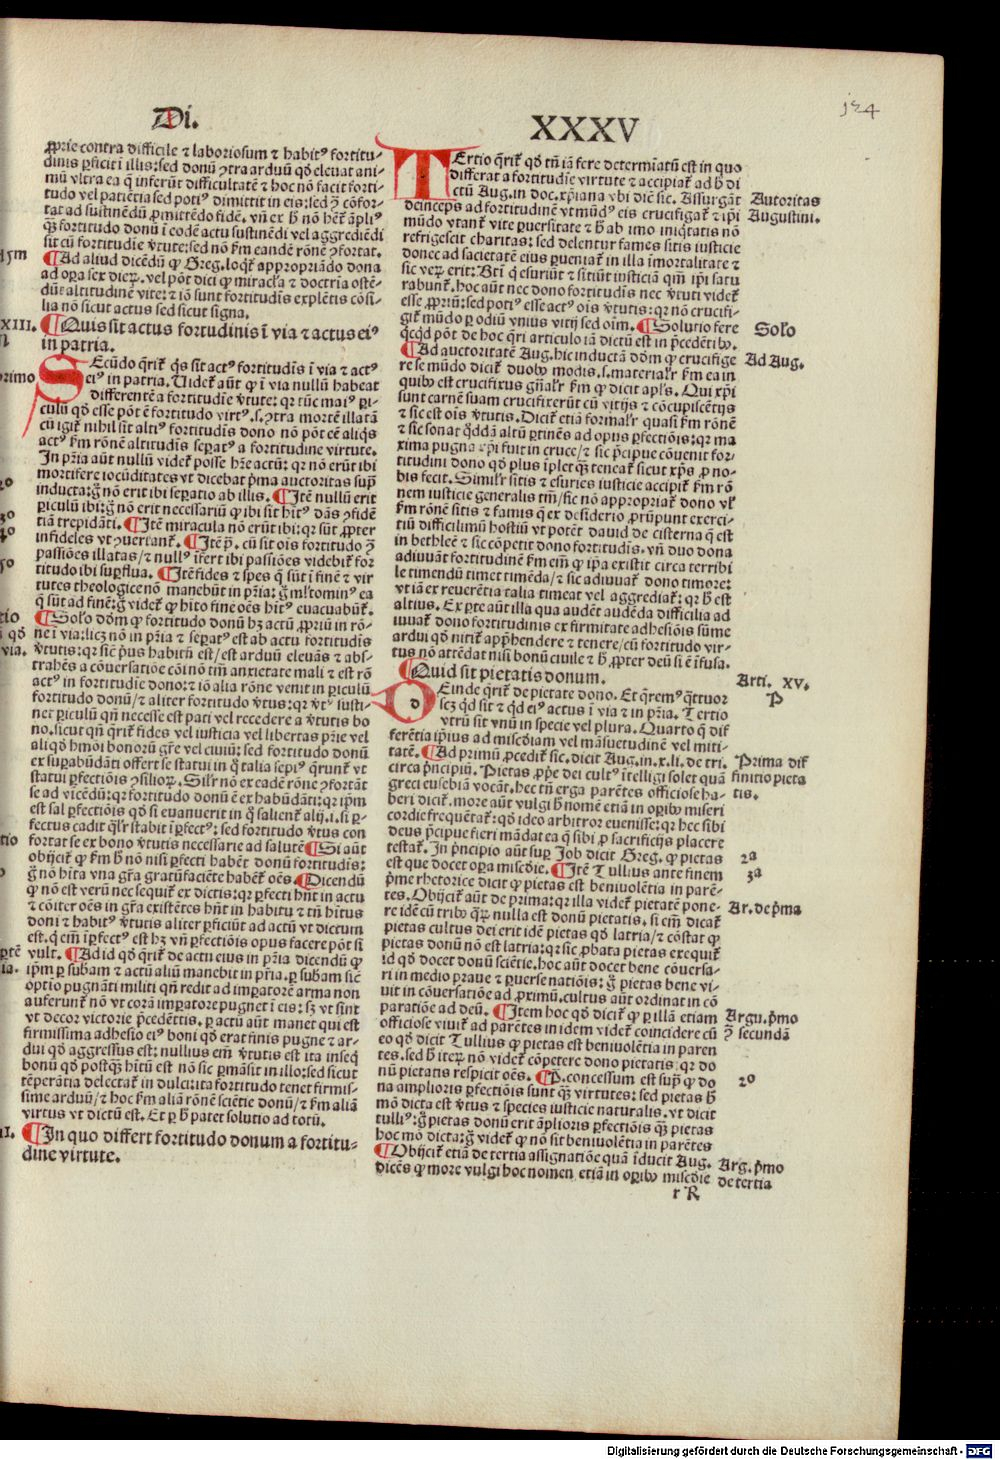 Di.
XXXV
124
ꝓprie contra difficile ⁊ laboriosum ⁊ habitꝰ fortitu-
dinis ꝑficit ĩ illis: sed donũ ꝯtra arduũ qđ eleuat ani-
mũ vltra ea q̃ inferũt difficultatẽ ⁊ hoc nõ facit forti-
tudo vel patiẽtia sed potiꝰ dimittit in eis: sed ꝯ̃ cõfor-
tat ad sustinẽdũ ꝓmittẽdo fidẽ. vñ ex ħ nõ hẽt̃ ãpliꝰ
q̃ꝫ fortitudo donũ ĩ eodẽ actu sustinẽdi vel aggrediẽdi
sit cũ fortitudĩe v̾tute: sed nõ ẜm eandẽ rõnẽ ꝯfortat.
¶Ad aliud dicẽdũ ꝙ Greg. loqt̃ appropriãdo dona
ad oꝑa sex dieꝝ. vel põt dici ꝙ miracl̃a ⁊ doctrĩa ostẽ-
dũt altitudinẽ vite: ⁊ iõ sunt fortitudĩs explẽtis cõsi-
lia nõ sicut actus sed sicut signa.
¶Quis sit actus fortudinis ĩ via ⁊ actus eiꝰ
in patria.
SEcũdo q̃rit̃ q̃s sit actꝰ fortitudĩs ĩ via ⁊ actꝰ
eiꝰ in patria. Uidet̃ aũt ꝙ ĩ via nullũ habeat
differentẽ a fortitudĩe v̾tute: qꝛ tũc maiꝰ ꝑi-
culũ qđ esse põt ẽ fortitudo virtꝰ. s. ꝯtra mortẽ illatã
cũ igit̃ nihil sit altiꝰ fortitudĩs dono nõ põt eẽ aliq̃s
actꝰ ẜm rõnẽ altitudĩs seꝑatꝰ a fortitudine virtute.
In pr̃ia aũt nullũ videt̃ posse hr̃e actũ: qꝛ nõ erũt ibi
mortifere iocũditates vt dicebat p̃ma auctoritas supͥ
inducta: g̃ nõ erit ibi seꝑatio ab illis. ¶Itẽ nullũ erit
ꝑiculũ ibi: g̃ nõ erit necessariũ ꝙ ibi sit hĩtꝰ dãs ꝯfidẽ
tiã trepidãti. ¶Itẽ miracula nõ erũt ibi: qꝛ sũt ꝓpter
infideles vt ꝯuertant̃. ¶Itẽ p̃. cũ sit oĩs fortitudo ꝯ̃
passiões illatas/ ⁊ nullꝰ ĩfert ibi passiões videbit̃ for
titudo ibi suꝑflua. ¶Itẽ fides ⁊ spes q̃ sũt ĩ finẽ ⁊ vir
tutes theologice nõ manebũt in pr̃ia: g̃ ml̃tominꝰ ea
q̃ sũt ad finẽ: g̃ videt̃ ꝙ hĩto fine oẽs hĩtꝰ euacuabũt̃.
¶Solo dõm ꝙ fortitudo donũ hꝫ actũ ꝓpriũ in rõ-
ne ĩ via: licꝫ nõ in pr̃ia ⁊ seꝑatꝰ est ab actu fortitudĩs
v̾tutis: qꝛ sic p̃us habitũ est/ est arduũ eleuãs ⁊ abs-
trahẽs a cõuersatiõe cõi nõ tm̃ anxietate mali ⁊ est rõ
actꝰ in fortitudĩe dono: ⁊ iõ alia rõne venit in ꝑiculũ
fortitudo donũ/ ⁊ aliter fortitudo v̾tus: qꝛ v̾tꝰ susti-
net ꝑiculũ qñ necesse est pati vel recedere a v̾tutis bo
no. sicut qñ q̃rit̃ fides vel iusticia vel libertas pr̃ie vel
aliqđ hmõi bonorũ gr̃e vel ciuiũ: sed fortitudo donũ
ex suꝑabũdãti offert se statui in q̃ talia sepiꝰ q̃runt̃ vt
statui ꝑfectiõis ꝯsilioꝝ. Silr̃ nõ ex eadẽ rõne ꝯfortãt
se ad vicẽdũ: qꝛ fortitudo donũ ẽ ex habũdãti: qꝛ ip̃m
est sal ꝑfectiõis qđ si euanuerit in q̃ salient̃ alij. i. si ꝑ-
fectus cadit q̃lr̃ stabit ĩꝑfectꝰ: sed fortitudo v̾tus con
fortat se ex bono v̾tutis necessarie ad salutẽ ¶Si aũt
obijcit̃ ꝙ ẜm ħ nõ nisi ꝑfecti habẽt donũ fortitudĩs:
g̃ nõ hĩta vna gr̃a gratũfaciẽte habẽt̃ oẽs. ¶Dicendũ
ꝙ nõ est verũ nec sequit̃ ex dictis: qꝛ ꝑfecti hñt in actu
⁊ cõiter oẽs in gr̃a existẽtes hñt in habitu ⁊ tñ hĩtus
doni ⁊ habitꝰ v̾tutis aliter ꝑficiũt ad actũ vt dictum
est. q̃ em̃ ĩꝑfectꝰ est hꝫ vñ ꝑfectiõis opus facere põt si
vult. ¶Ad id qđ q̃rit̃ de actu eius in pr̃ia dicendũ ꝙ
ip̃m ꝑ subam̃ ⁊ actũ aliũ manebit in pr̃ia. ꝑ subam̃ sic
optio pugnãti militi qñ redit ad imꝑatorẽ arma non
auferunt̃ nõ vt corã imꝑatore pugnet ĩ eis: sꝫ vt sint
vt decor victorie p̃cedẽtis. ꝑ actũ aũt manet qui est
firmissima adhesio eiꝰ boni qđ erat finis pugne ⁊ ar-
dui qđ aggressus est: nullius em̃ v̾tutis est ita inseq̃
bonũ qđ postq̃ꝫ hĩtũ est nõ sic ꝑmãsit in illo: sed sicut
tẽperãtia delectat̃ in dulci: ita fortitudo tenet firmis-
sime arduũ/ ⁊ hoc ẜm aliã rõnẽ sciẽtie donũ/ ⁊ ẜm aliã
virtus vt dictũ est. Et ꝑ ħ patet solutio ad totũ.
¶In quo differt fortitudo donum a fortitu-
dine virtute.
TErtio q̃rit̃ qđ tñ iã fere determĩatũ est in quo
differat a fortitudĩe virtute ⁊ accipiat̃ ad ħ di
ctũ Aug. in doc. xp̃iana vbi diẽ sic. Assurgãt
deinceps ad fortitudinẽ vt mũdꝰ eis crucifigat̃ ⁊ ip̃i
mũdo vtant̃ vite ꝑuersitate ⁊ ħ ab imo iniq̃tatis nõ
refrigescit charitas: sed delentur fames sitis iusticie
donec ad sacietatẽ eius ꝑueniat̃ in illa ĩmortalitate ⁊
sic veꝝ erit: Bt̃i q̃ esuriũt ⁊ sitiũt insticiã qm̃ ip̃i satu
rabunt̃. hoc aũt nec dono fortitudĩs nec v̾tuti videt̃
esse ꝓpriũ: sed potiꝰ esse actꝰ oĩs v̾tutis: qꝛ nõ crucifi-
git̃ mũdo ꝑ odiũ vnius vitij sed oĩm. ¶Solutio fere
q̃cq̃d põt de hoc q̃ri articulo iã dictũ est in p̃cedẽtibꝰ.
¶Ad auctoritatẽ Aug. hic inductã dõm ꝙ crucifige
re se mũdo dicit̃ duobꝰ modis. s. materialr̃ ẜm ea in
quibꝰ est crucifixus gñalr̃ ẜm ꝙ dicit apl̃s. Qui xp̃i
sunt carnẽ suam crucifixerũt cũ vitijs ⁊ cõcupiscẽtijs
⁊ sic est oĩs v̾tutis. Dicit̃ etiã formalr̃ quasi ẜm rõnẽ
⁊ sic sonat q̃ddã altũ ꝑtinẽs ad opus ꝑfectiõis: qꝛ ma
xima pugna xp̃i fuit in cruce/ ⁊ sic p̃cipue cõuenit for-
titudini dono qđ plus ĩplet q̃ꝫ teneat̃ sicut xp̃s ꝓ no-
bis fecit. Similr̃ sitis ⁊ esuries iusticie accipit̃ ẜm rõ
nem iusticie generalis tm̃/ sic nõ appropriat̃ dono vl̃
ẜm rõnẽ sitis ⁊ famis q̃ ex desiderio ꝓrũpunt exerci-
tiũ difficilimũ hostiũ vt potẽt̃ dauid de cisterna q̃ est
in bethleẽ ⁊ sic cõpetit dono fortitudĩs. vñ duo dona
adiuuãt fortitudinẽ ẜm em̃ ꝙ ip̃a existit circa terribi
le timendũ timet timẽda/ ⁊ sic adiuuat̃ dono timore:
vt iã ex reuerẽtia talia timeat vel aggrediat̃: qꝛ ħ est
altius. Ex ꝑte aũt illa qua audẽt audẽda difficilia ad
iuuat̃ dono fortitudinis ex firmitate adhesiõis sũme
ardui qđ nitit̃ app̃hendere ⁊ tenere/ cũ fortitudo vir-
tus nõ attẽdat nisi bonũ ciuile ⁊ ħ ꝓpter deũ si ẽ ĩfusa.
¶Quid sit pietatis donum.
DEinde q̃rit̃ de pietate dono. Et q̃remꝰ q̃ttuor
scꝫ q̃d sit ⁊ q̃d eiꝰ actus ĩ via ⁊ in pr̃ia. Tertio
vtrũ sit vnũ in specie vel plura. Quarto q̃ dif
ferẽtia ip̃ius ad mĩscdiam vel mãsuetudinẽ vel miti-
tatẽ. ¶Ad primũ ꝓcedit̃ sic. dicit Aug. in .x. li. de tri.
circa p̃ncipiũ. Pietas ꝓp̃e dei cultꝰ ĩtelligi solet quã
greci eusebiã vocãt. hec tñ erga parẽtes officiose ha-
beri dicit̃. more aũt vulgi ħ nomẽ etiã in oꝑibꝰ miseri
cordie frequẽtat̃: qđ ideo arbitror euenisse: qꝛ hec sibi
deus p̃cipue fieri mãdat ea q̃ sibi ꝓ sacrificijs placere
testat̃. In p̃ncipio aũt suꝑ Job dicit Greg. ꝙ pietas
est que docet oꝑa mĩscdie. ¶Itẽ Tullius ante finem
p̃me rhetorice dicit ꝙ pietas est beniuolẽtia in parẽ-
tes. Obijcit̃ aũt de prima: qꝛ illa videt̃ pietatẽ pone-
re idẽ cũ tribꝰ q̃ꝝ nulla est donũ pietatis. si em̃ dicat̃
pietas cultus dei erit idẽ pietas qđ latria/ ⁊ cõstat ꝙ
pietas donũ nõ est latria: qꝛ sic ꝓbata pietas exequit̃
id qđ docet donũ sciẽtie. hoc aũt docet bene cõuersa-
ri in medio praue ⁊ ꝑuerse natiõis: g̃ pietas bene vi-
uit in cõuersatiõe ad ꝓximũ. cultus aũt ordinat in cõ
paratiõe ad deũ. ¶Item hoc qđ dicit̃ ꝙ ꝑ illã etiam
officiose viuit̃ ad parẽtes in idem videt̃ coincidere cũ
eo qđ dicit Tullius ꝙ pietas est beniuolẽtia in paren
tes. sed ħ iteꝝ nõ videt̃ cõpetere dono pietatis: qꝛ do
nũ pietatis respicit oẽs. ¶P̃. concessum est supͣ ꝙ do
na amplioris ꝑfectiõis sunt q̃ꝫ virtutes: sed pietas ħ
mõ dicta est v̾tus ⁊ species iusticie naturalis. vt dicit
tulliꝰ: g̃ pietas donũ erit ãplioris ꝑfectiõis q̃ꝫ pietas
hoc mõ dicta: g̃ videt̃ ꝙ nõ sit beniuolẽtia in parẽtes
¶Obijcit̃ etiã de tertia assignatiõe quã ĩducit Aug.
dicẽs ꝙ more vulgi hoc nomen etiã in oꝑibꝰ mĩscdie
r R
Autoritas
Augustini.
Solo
Ad Aug.
Arti. XV.
P
Prima dif
finitio pieta
tis.
2ª
3ª
Ar. de p̃ma
Argu. p̃mo
ꝯ̃ secundã
2º
Arg. p̃mo
de tertia
XIII.
Digitalisierung gefördert durch die Deutsche Forschungsgemeinschaft - DFG